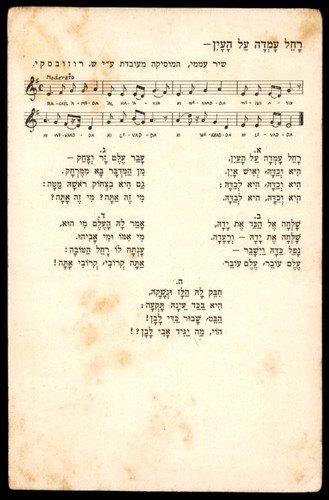 רָחֵל עָמְדָה עַל הָעַיִן—
שיר עממי, המוסיקה מעובדת ע״י ש. רוזובסקי.
Moderato
RA-CHEL A-M-DA AL HA-A-YIN HI W-KAD-DA WE-ISH A-YIN
HI W-KAD-DA HI L'-VAD-DA HI W-KAD-DA HI L'-VAD-DA
א.
רָחֵל עָמְדָה עַל הָעַיִן,
הִיא וְכַדָּהּ, וְאִישׁ אָיִן,
הִיא וְכַדָּהּ, הִיא לְבַדָּהּ:
הִיא וְכַדָּהּ, הִיא לְבַדָּהּ,
ב.
שָׁלְחָה אֶל הַכַּד אֶת יָדָהּ,
שָׁלְחָה אֶת יָדָהּ — וְרָעָדָה.
נָפַל כַּדָּהּ וַיִּשָּׁבֵר —
עֶלֶם עוֹבֵר, עֶלֶם עוֹבֵר.
ג.
עָבַר עֶלֶם זָר וְצָחַק—
מִן הַמִּדְבָּר בָּא מִמֶּרְחָק.
גַּם הִיא בִּצְחוֹק רֹאשָׁהּ מַטָּה:
מִי זֶה אַתָּה? מִי זֶה אַתָּה?
ד.
אָמַר לָהּ הָעֶלֶם מִי הוּא,
מִי אִמּוֹ וּמִי אָבִיהוּ.
עָנְתָה לוֹ רָחֵל הַטּוֹבָה:
אַתָּה קְרוֹבִי, קְרוֹבִי אַתָּה!
ה.
חִבֵּק לָהּ הַלָּז וְנָשְׁקָהּ,
הִיא בְּכַד עֵינָהּ תָּקְעָה:
הַבֵּט, שָׁבוּר כַּדִּי לָבָן!
הוֹי, מַה יַגִּיד אָבִי לָבָן?!